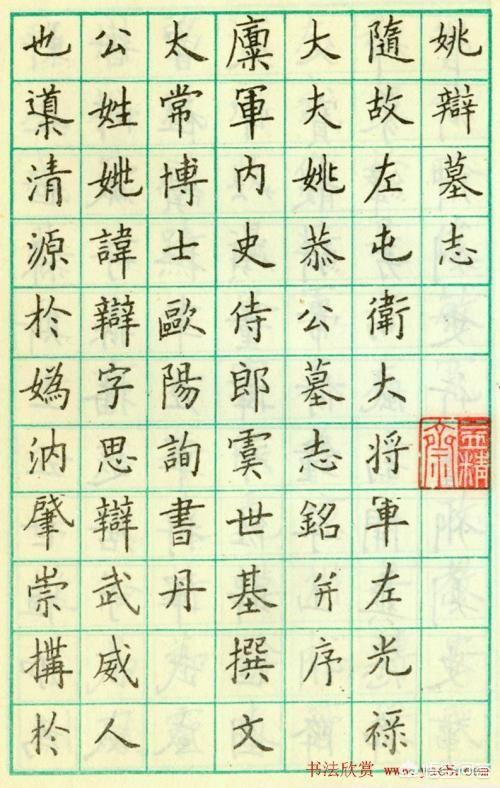 姚辯墓志
隨故左屯衛大将軍左光禄
大夫姚恭公墓志銘并序
廩軍内史侍郎虞世基撰文
太常博士歐陽詢書丹
公姓姚諱辯字思辯武威人
也導清源於媯汭肇崇搆於
书法欣赏